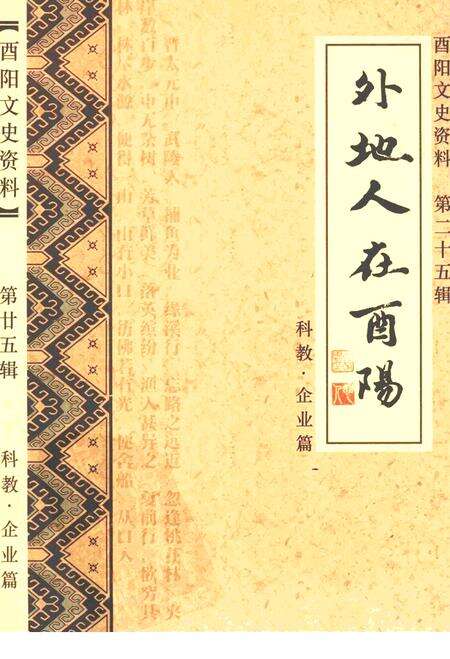 酉阳文史资料 第二十五辑
外地人在酉陽
科教·企业篇
晋太元中 武陵人 捕鱼为业 缘溪行 忘路之远近 忽逢桃花林 夹
岸数百步 中无杂树 芳草鲜美 落英缤纷 渔人甚异之 复前行 欲穷其
林 林尽水源 便得一山 山有小口 仿佛若有光 便舍船 从口入
【酉阳文史资料】
第廿五辑
科教·企业篇